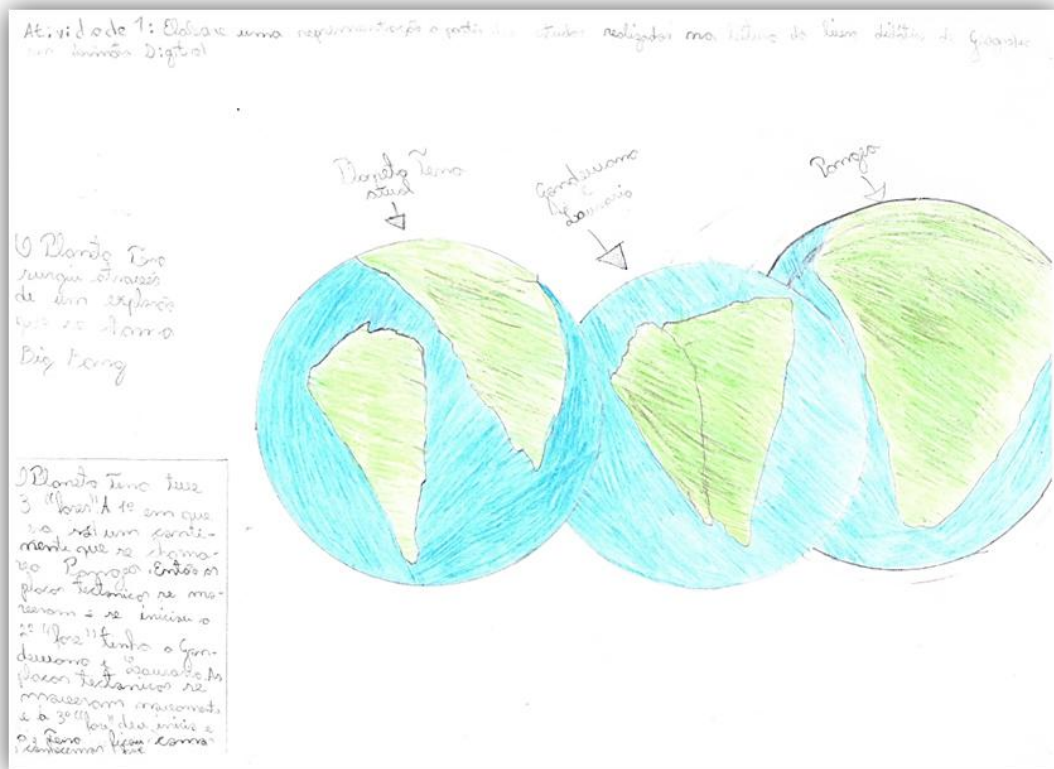 Atividade 1: Elabore uma representação a partir dos estudos realizados na leitura do livro didático de Geografia
em versão Digital
Planeta Terra
atual
Gondwana
e
Laurasia
Pangeia
O Planeta Terra
surgiu através
de um explosão
que se chama
Big Bang
O Planeta Terra teve
3 "fases" A 1º em que
só um conti-
nente que se chama-
va Pangeia. Então as
placas tectonicas se mo-
veram e se iniciou a
2º "fase" tinha o Gon-
dewana e Laurasia. As
placas tectanicas se
moveram novamente
e a 3º "fase" deu inicio e
a Terra ficou como
conhecemos